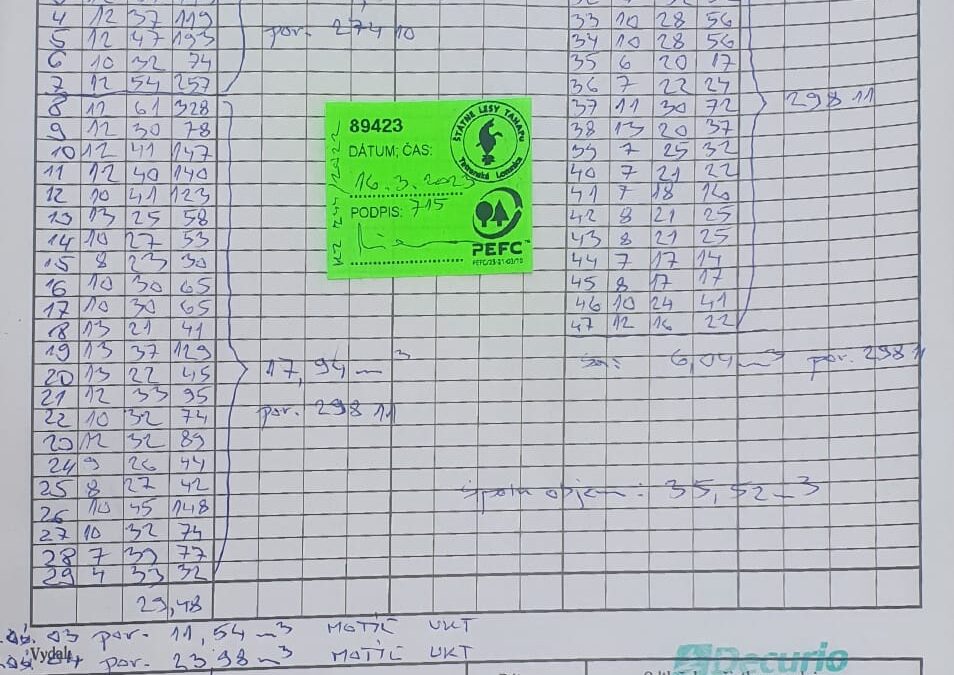 4 12 37 119
5 12 47 193
6 10 32 74
7 12 54 257
por. 274 10
8 12 61 328
9 12 30 78
10 12 41 147
11 12 40 140
12 10 41 123
13 13 25 58
14 10 27 53
15 8 23 30
16 10 30 65
17 10 30 65
18 13 21 41
19 13 37 129
20 13 22 45
21 12 33 95
22 10 32 74
23 12 32 89
24 9 26 44
25 8 27 42
26 10 45 148
27 10 32 74
28 7 39 77
29 4 33 32
17,94 m3
por. 298 11
29,48
89423
DÁTUM; ČAS:
16.3.2023
PODPIS: 715
ŠTÁTNE LESY TANAPU
Tatranská Lomnica
PEFC™
PEFC/23-21-02/10
33 10 28 56
34 10 28 56
35 6 20 17
36 7 22 24
37 11 30 72
38 13 20 37
39 7 25 32
40 7 21 22
41 7 18 16
42 8 21 25
43 8 21 25
44 7 17 14
45 8 17 17
46 10 24 41
47 12 16 22
298 11
6,04 m3 por. 298 11
Spolu objem: 35,52 m3
03 por. 11,54 m3 MOTÍĽ UKT
Vydal:
04 por. 23 98 m3 MOTÍĽ UKT
Decurio